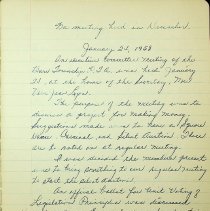 No meeting held in December.
January 22, 1958
An executive committee meeting of the
Township P.T.A. was held January
at the home of the Secretary Mrs.
The purpose of the meeting was to
discuss a project for making money.
Suggestions made were to have a Square
Dance, Carnival and Silent Auction. These
are to be voted on at regular meeting.
It was decided the members present
were to bring something to our regular meeting
to start the silent auction.
An official Ballot for Unit Voting of
Legislation Principles was discussed